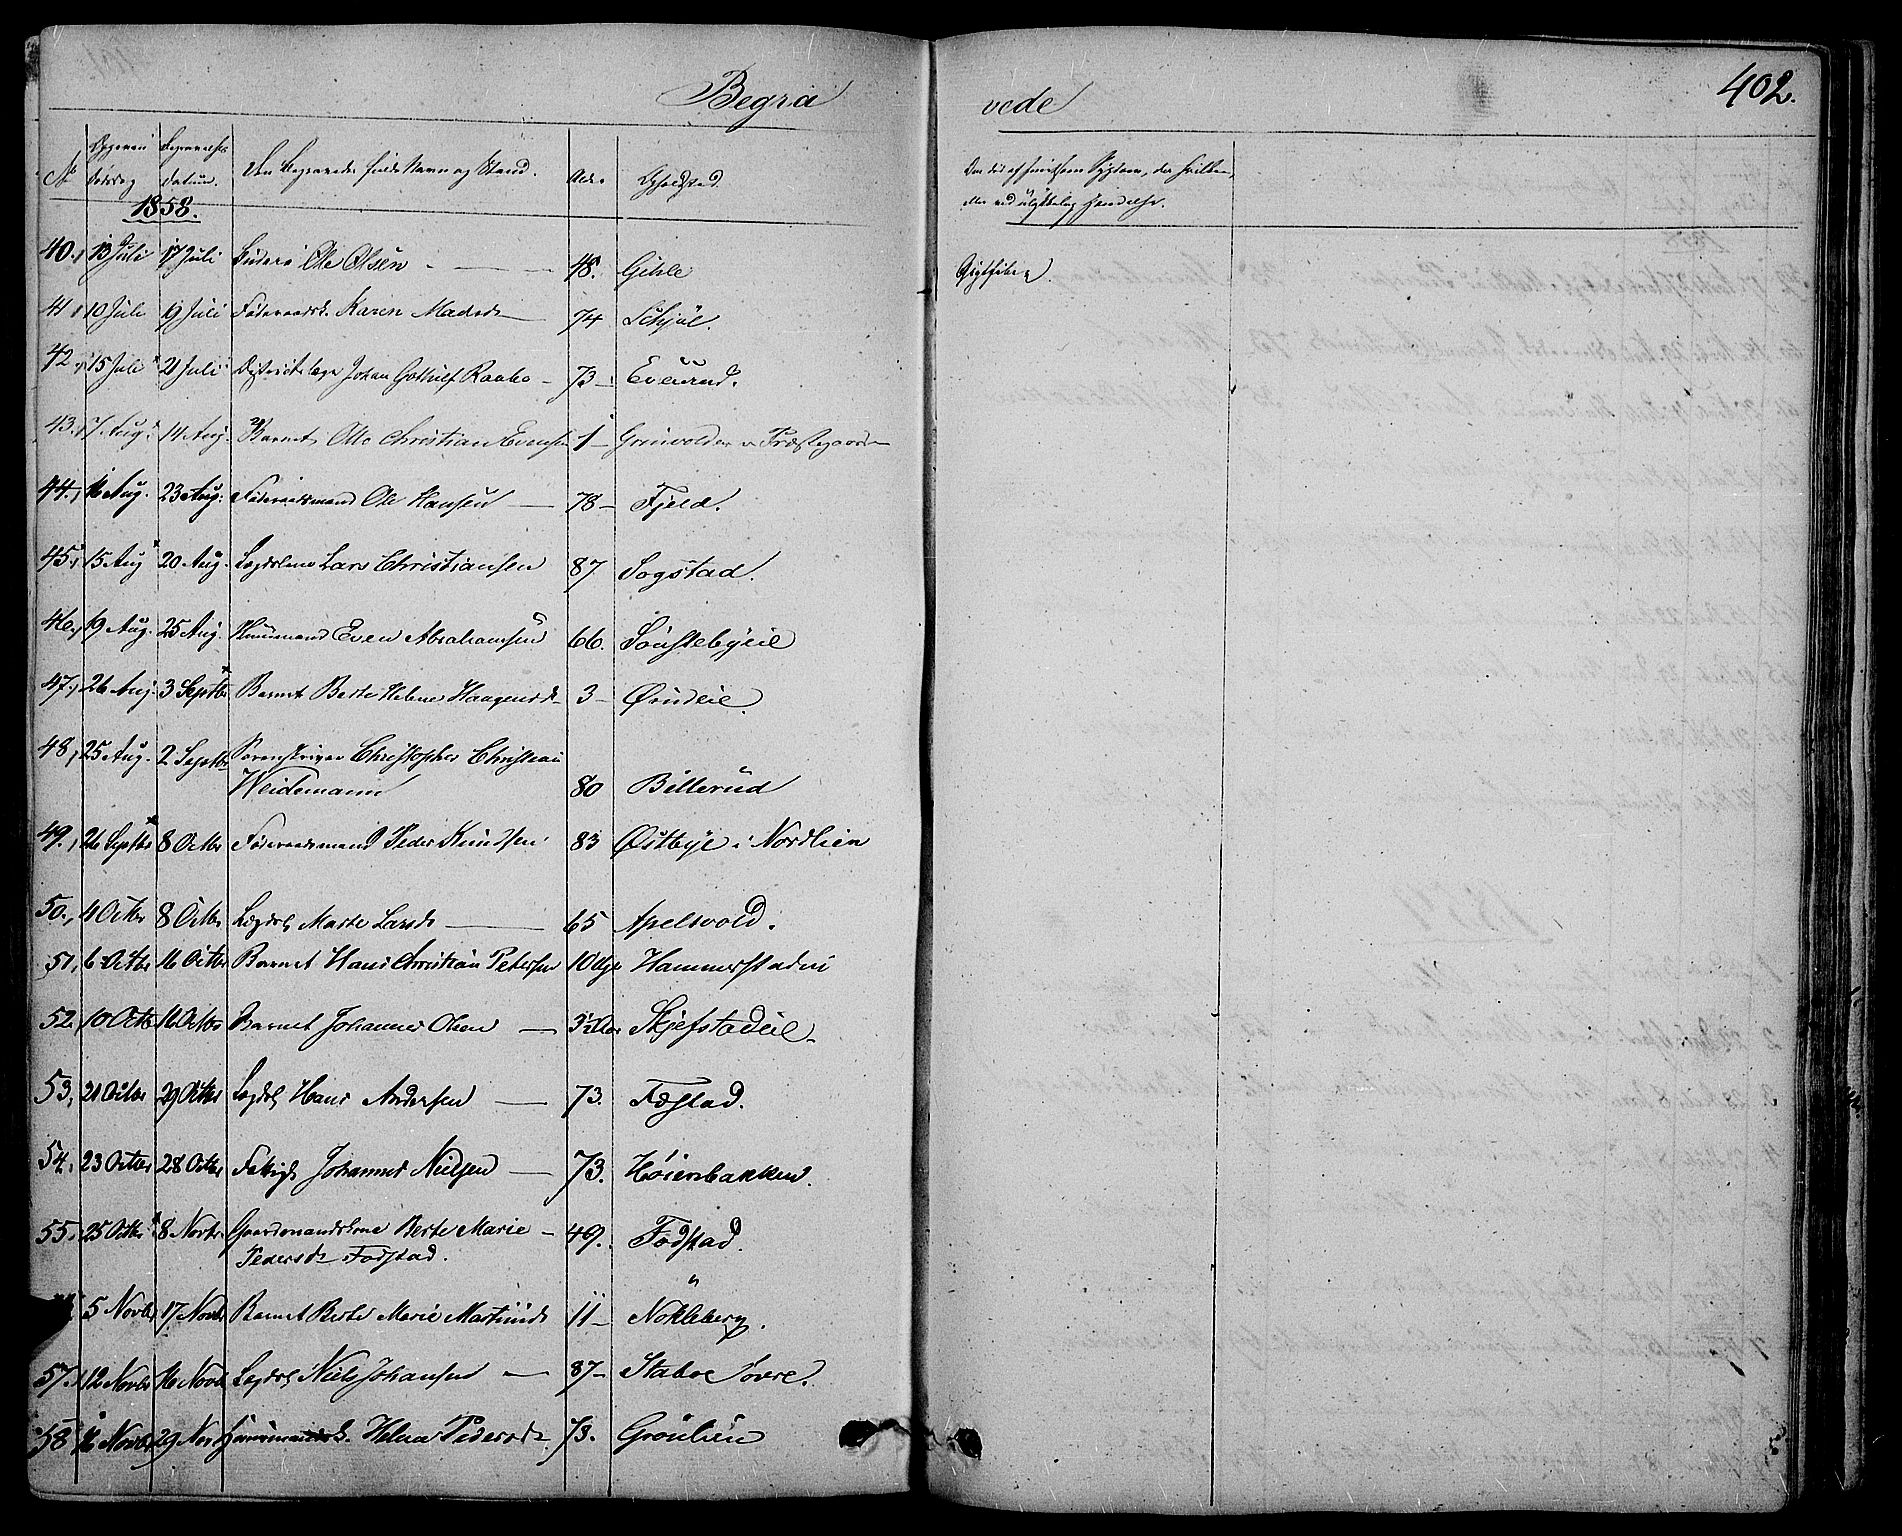 Begra vede 402.
No Opgiven Dødsdag Begravelses Datum. Den Begravedes fulde Navn og Stand. Alder Opholdsted.
1858.
40. 13 Juli 17 Juli Ole Olsen - 48. Gihle
41. 10 Juli 19 Juli Føderaadsk. Karen Madsd 74 Schjül.
42. 15 Juli 21 Juli Districtslæge Johan Gothilf Raabe - 73 - Evenrud.
43. 7 Aug. 14 Aug. Barnet Otto Christian Evensen 1 - Grinvolden v Præstegaarden
44. 16 Aug. 23 Aug. Føderaadsmand Ole Hansen - 78 - Fjeld.
45. 15 Aug 20 Aug. Lægdslem Lars Christiansen 87 Sogstad.
46. 19 Aug. 25 Aug. Huusmand Even Abrahamsen 66. Sønstebyeie
47. 26 Aug 3 Septbr Barnet Berte Helene Haagensd. 3 - Ørudeie.
48. 25 Aug. 2 Septbr Sorenskriver Christopher Christian
Weidemann 80 Billerud
49. 26 Septbr 8 Octbr Føderaadsmand Peder Knudsen 83 Østbye i Nordlien
50. 4 Octbr 8 Octbr Lægdsl Marte Larsd - 65 Apelsvold.
51. 6 Octbr 16 Octbr Barnet Hans Christian Petersen 10 Uger Hammerstadeie
52. 10 Octbr 16 Octbr Barnet Johannes Olsen - 3½ Skjefstadeie.
53. 21 Octbr 29 Octbr Lægdsl Hans Andersen - 73. Fæstad.
54. 23 Octbr 28 Octbr Fattigl Johannes Nielsen - 73. Høiensbakken.
55. 25 Octbr 8 Novbr Gaardmandskone Berte Marie - 49. Fodstad.
Pedersd Fodstad.
5 Novbr 17 Novbr Barnet Berte Marie Martinusd 11 - Nøkleberg.
57. 12 Novbr 16 Novbr Lægdsl Niels Johansen - 87 - Staboe øvre.
58 16 Novbr 29 Nov Huusmandsk. Helene Pedersd. 73. Grønlien